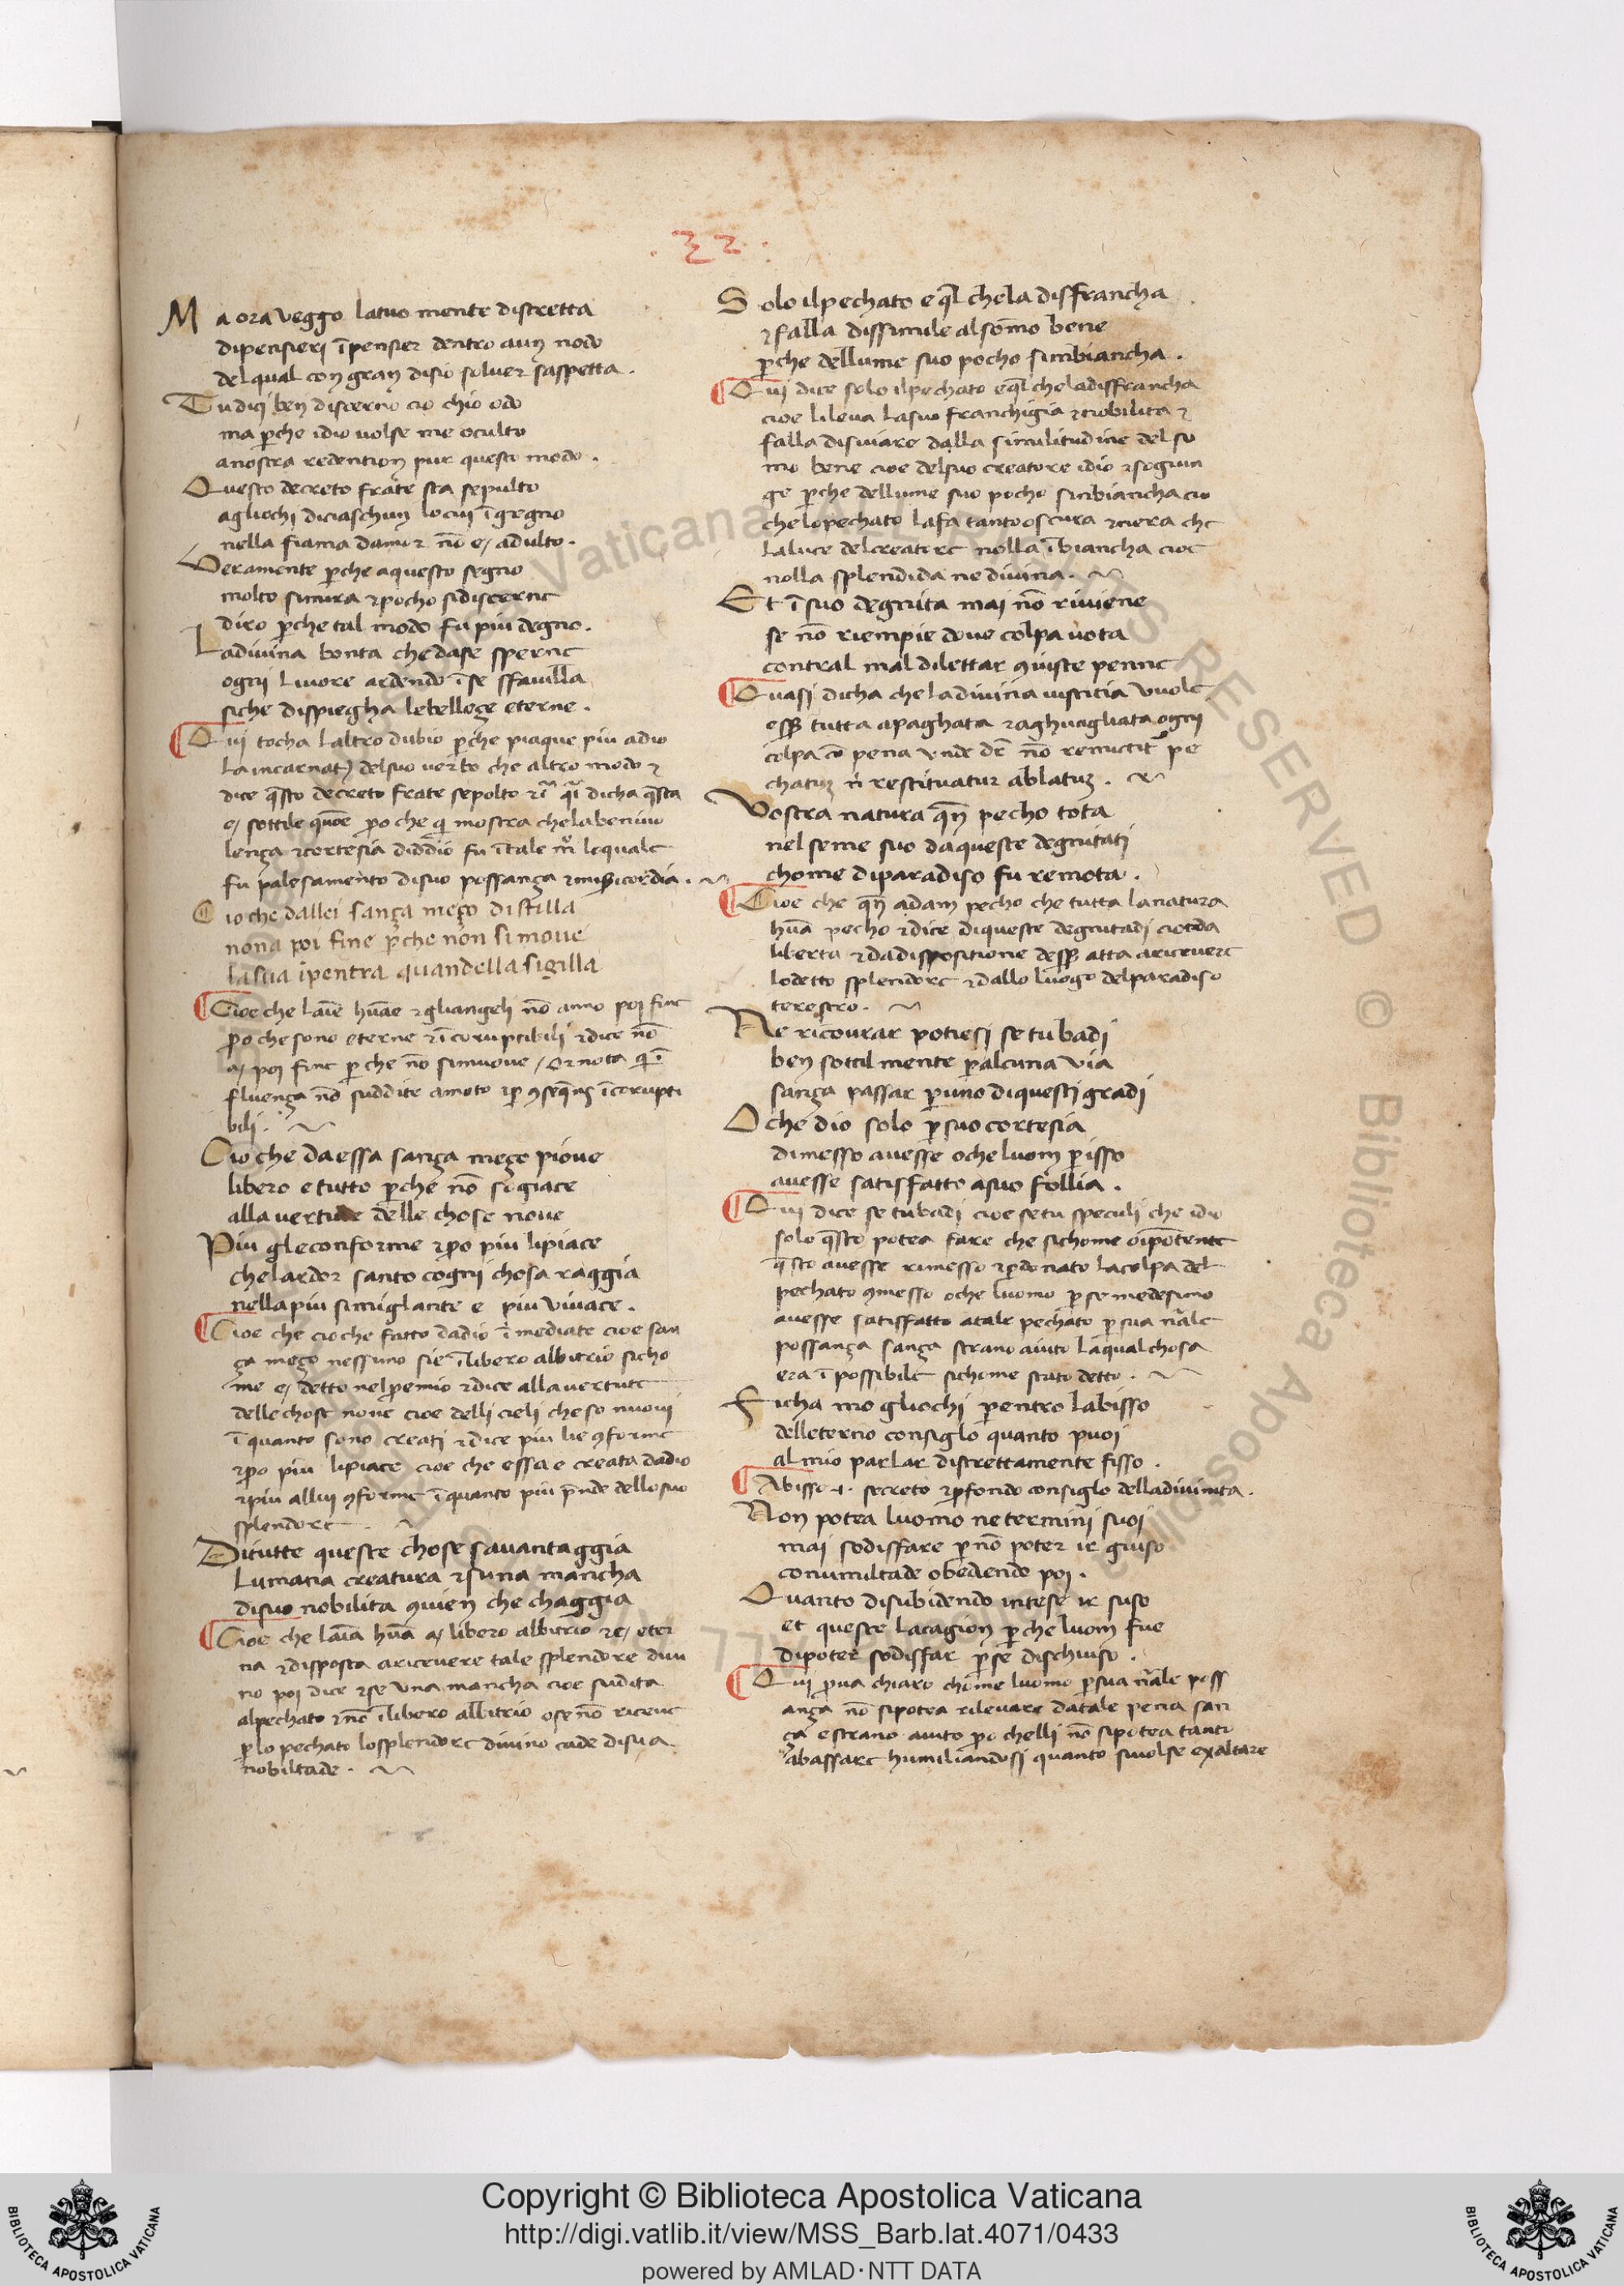 . 32 .
Ma ora veggo latuo mente discretta
dipensieri ī pensier dentro aun nodo
delqual con gran disio soluer saspetta .
Tu dici ben discerno cio chio odo
ma p̄che idio uolse me oculto
anostra redention pur questo modo .
Questo decreto frate sta sepulto
agliochi diciaschun locui īgegno
nella fiama damor nō e/ adulto .
Veramente p̄che aquesto segno
molto simira ⁊pocho sidiscerne
diro p̄che tal modo fu piu degno .
Ladiuina bonta chedase sperne
ogni liuore ardendo īse sfauilla
siche dispiegha lebelleze eterne .
Qui tocha laltro dubio p̄che piaque piu adio
la incarnat) delsuo uerbo che altro modo ⁊
dice q̄sto decreto frate sepolto
e/ sottile po che q̄ mostra chelabeniuo
lenza ⁊cortesia diddio fu ītale lequale
fu palesamento disuo possanza ⁊misericordia .
Cio che dallei sanza mezo distilla
nona poi fine p̄che non simoue
lasua ipentra quandella sigilla
Cioe che laīe hūae ⁊gliangeli nō anno poi fine
po che sono eterne ⁊īcoruptibili ⁊dice nō
a/ poi fine p̄ che nō simuoue / Or nota
fluenza nō suddite amoto īcorupti
bili .
Cio che daessa sanza mezo pioue
libero e tutto p̄che nō sogiace
alla vertude delle chose noue
Piu gleconforme ⁊p̄o piu lipiace
chelardor santo cogni chosa raggia
nellapiu simiglante e piu viuace .
Cioe che cioche fatto dadio ī mediate cioe san
za mezo nessuno sie īlibero albitrio sicho
me e/ detto nelp̄emio ⁊dice allavertute
delle chose noue cioe delli cieli cheso nuoui
ī quanto sono creati ⁊dice piu lie ꝯforme
⁊p̄o piu lipiace cioe che essa e creata dadio
⁊piu allui ꝯforme īquanto piu p̄nde dellosuo
splendore .
Ditutte queste chose sauantaggia
lumana creatura ⁊suna mancha
disuo nobilita ꝯuien che chaggia
Cioe che laīa hūa a/ libero albitrio ⁊e/ eter
na ⁊disposta ariceuere tale splendore diui
no poi dice ⁊se una mancha cioe sudita
alpechato ⁊nō īlibero albitrio ose nō riceue
p̄lo pechato losplendore diuino cade disua
nobiltade .
Solo ilpechato e q̄l chela disfrancha
⁊falla dissimile alsōmo bene
p̄che dellume suo pocho sinbiancha .
Qui dice solo ilpechato eq̄l cheladisfrancha
cioe lileua lasuo franchigia ⁊nobilita ⁊
falla disuiare dalla similitudine delso
mo bene cioe delsuo creatore idio ⁊sogiun
ge p̄che dellume suo pocho sinbiancha cio
chelopechato lafa tanto oscura ⁊nera che
laluce delcreatore nolla ībiancha cioe
nolla splendida ne diuina .
Et īsuo degnita mai nō riuiene
se nō riempie doue colpa uota
contral mal dilettar ꝯiuste penne
Quasi dicha che ladiuina iustitia vuole
esser tutta apaghata ⁊aghuagliata ogni
colpa cō pena vnde dr̄ nō remictit pe
chatuz nī restituatur ablatuz .
Vostra natura qn̄ pecho tota
nel seme suo daqueste degnitati
chome diparadiso fu remota .
Cioe che qn̄ adam pecho che tutta lanatura
hūa pecho ⁊dice diqueste degnitadi cioeda
liberta ⁊dadispositione desser atta ariceuere
lodetto splendore ⁊dallo luogo delparadiso
terestro .
Ne ricourar potiesi se tu badi
ben sottilmente p̄alcuna via
sanza passar p̄uno diquesti gradi
O che dio solo p̄suo cortesia
dimesso auesse oche luom p̄isso
auesse satisfatto asuo follia .
Qui dice se tubadi cioe setu speculi che idio
solo q̄sto potea fare che sichome oīpotente
q̄sto auesse rimesso ⁊p̄donato lacolpa del
pechato ꝯmesso oche luomo p̄se medesimo
auesse satisfatto atale pechato p̄sua nāle
possanza sanza strano aiuto laqualchosa
era ī possibile sichome stato detto .
Ficha mo gliochi p̄entro labisso
delleterno consiglo quanto puoi
al mio parlar discrettamente fisso .
Abisso .i. secreto ⁊p̄fondo consiglo delladiuinita .
Non potea luomo ne termini suoi
mai sodisfare p̄nō poter ir giuso
conumiltade obediendo poi .
Quanto disubidendo intese ir suso
et queste lacagion p̄che luom fue
dipoter sodisfar p̄se dischiuso .
Qui p̄ua chiaro chome luomo p̄sua nāle poss
anza nō sipotea rileuare datale pena san
za estrano aiuto p̄o chelli nō sipotea tanto
abassare humiliandosi quanto siuolse exaltare
Copyright © Biblioteca Apostolica Vaticana
http://digi.vatlib.it/view/MSS_Barb.lat.4071/0433
powered by AMLAD·NTT DATA
BIBLIOTECA APOSTOLICA VATICANA
BIBLIOTECA APOSTOLICA VATICANA